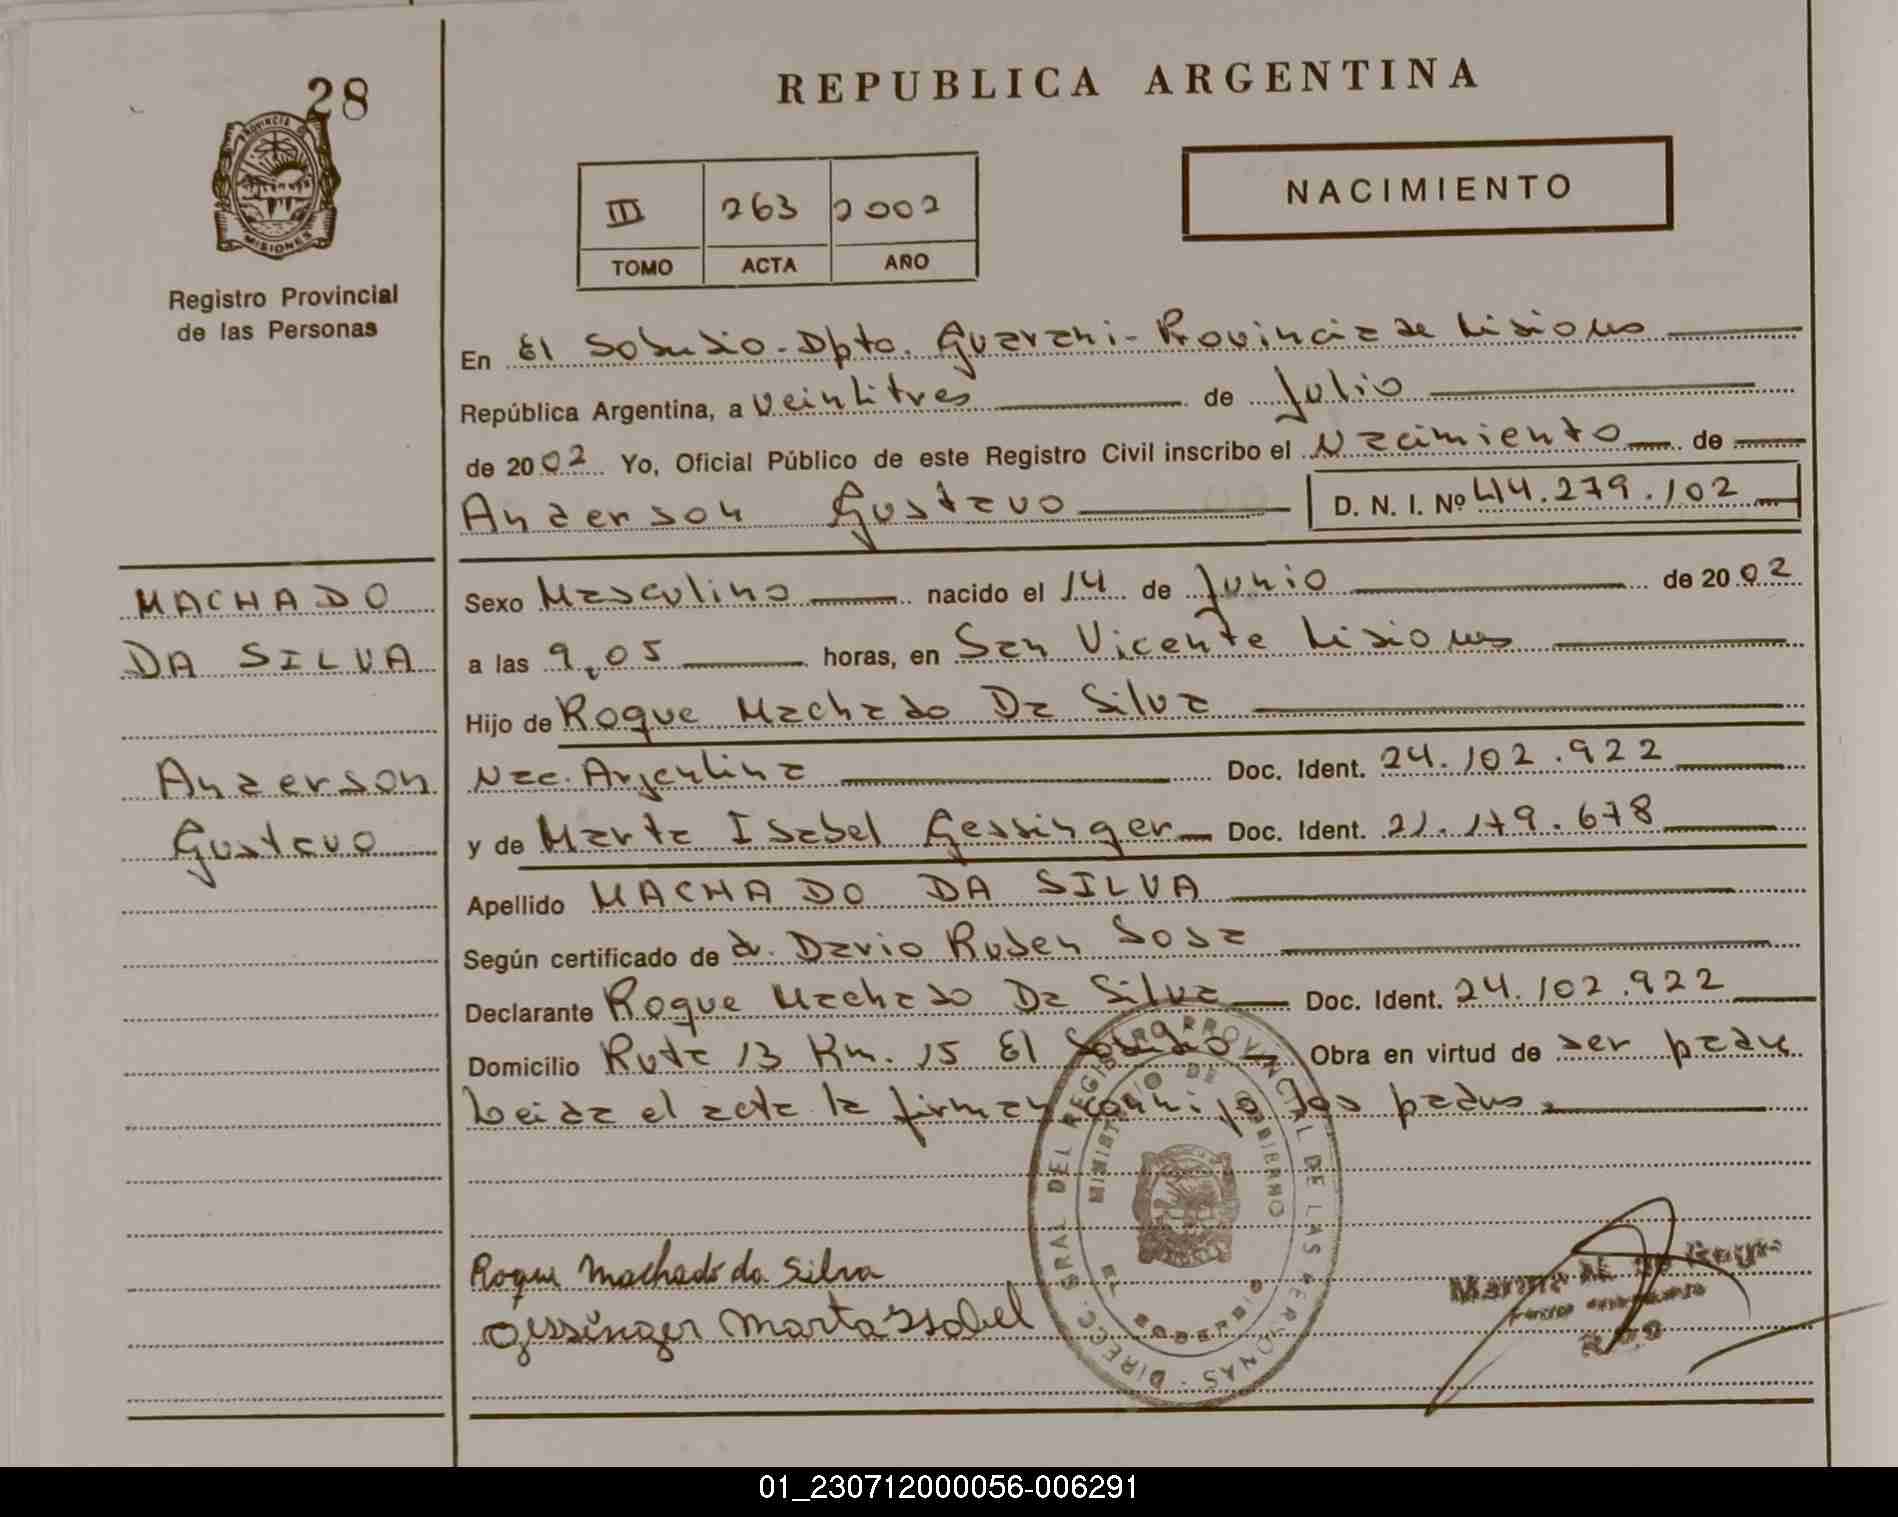 28
PROVINCIA DE
MISIONES
Registro Provincial
de las Personas
REPUBLICA ARGENTINA
III 263 2002
TOMO ACTA AÑO
NACIMIENTO
En El Soberbio - Dpto. Guarani - Provincia de Misiones
República Argentina, a Veintitres de Julio
de 2002 Yo, Oficial Público de este Registro Civil inscribo el Nacimiento de
Anderson Gustavo D. N. I. Nº 44.279.102
MACHADO
DA SILVA
Anderson
Gustavo
Sexo Masculino nacido el 14 de Junio de 2002
a las 9,05 horas, en San Vicente Misiones
Hijo de Roque Machado Da Silva
Nac. Argentina Doc. Ident. 24.102.922
y de Marta Isabel Gessinger Doc. Ident. 21.179.678
Apellido MACHADO DA SILVA
Según certificado de dr. Dario Ruben Sosa
Declarante Roque Machado Da Silva Doc. Ident. 24.102.922
Domicilio Ruta 13 Km. 15 El Soberbio Obra en virtud de ser padre
Leida el acta la firman conmigo los padres.
DIREC. GRAL DEL REGISTRO PROVINCIAL DE LAS PERSONAS
MINISTERIO DE GOBIERNO
EL SOBERBIO
Roque Machado da Silva
Gessinger Marta Isabel
01_230712000056-006291